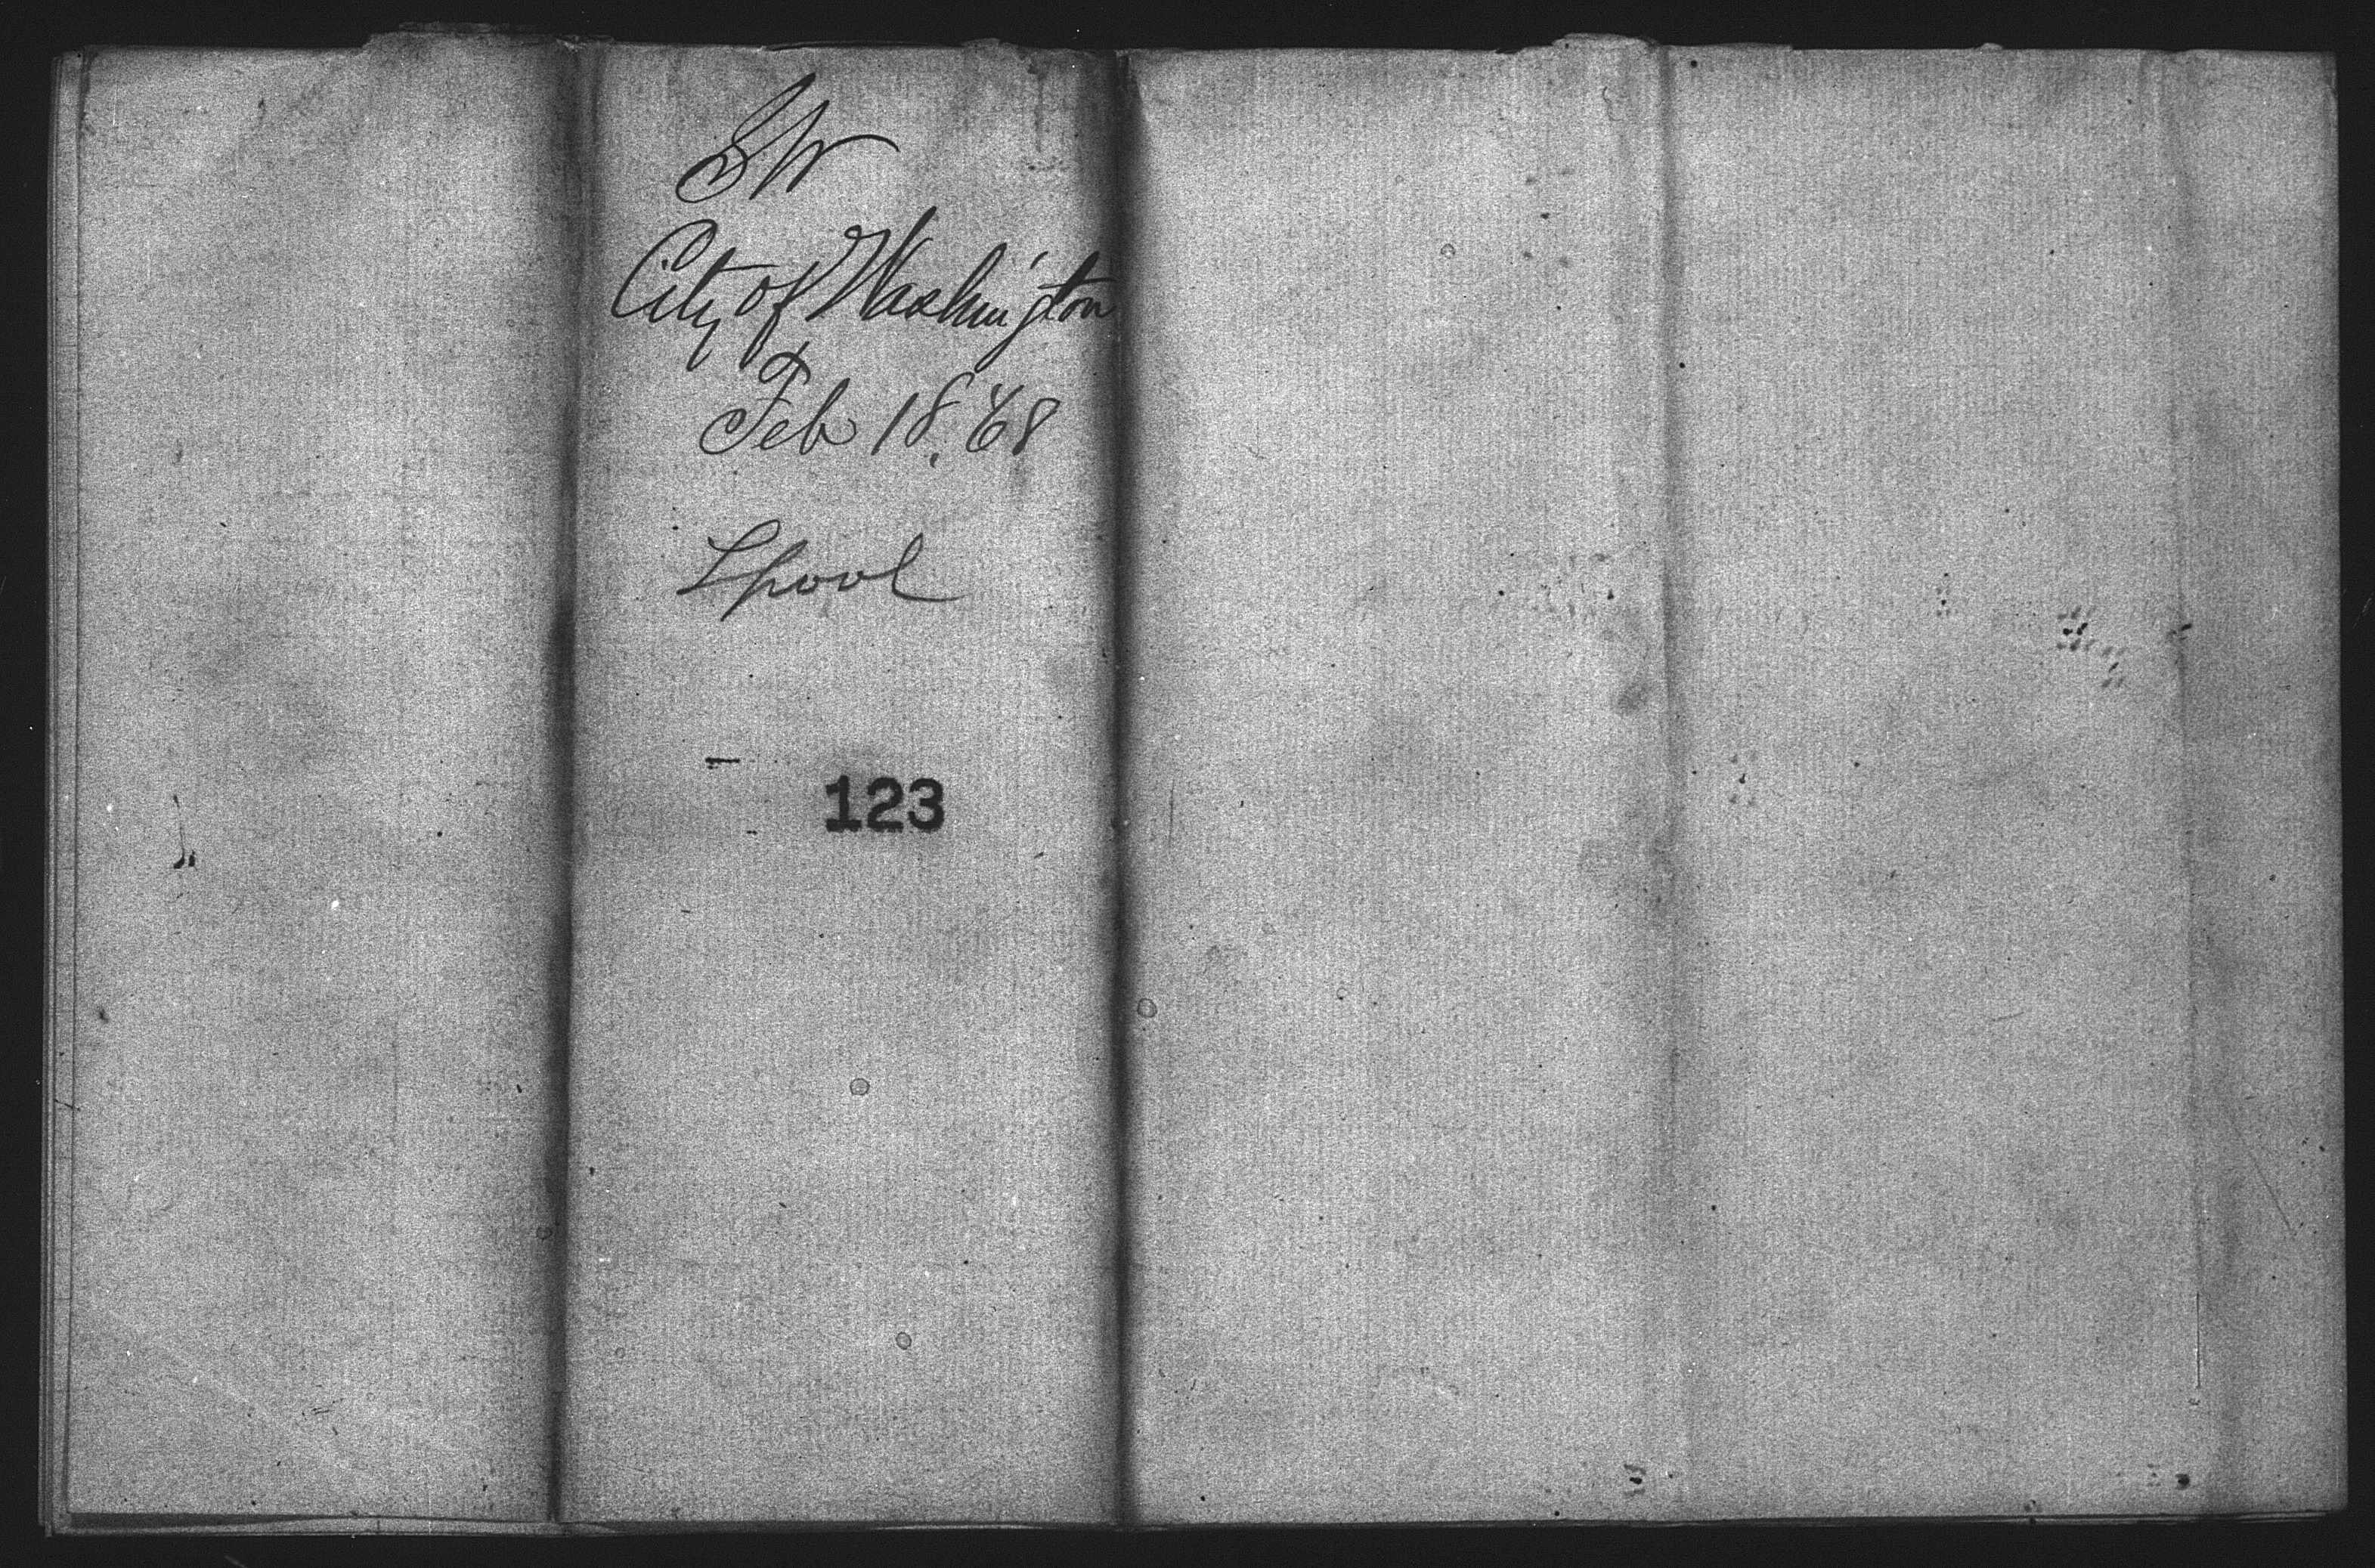 SW
City of Washington
Feb 18, '68
Lpool
123